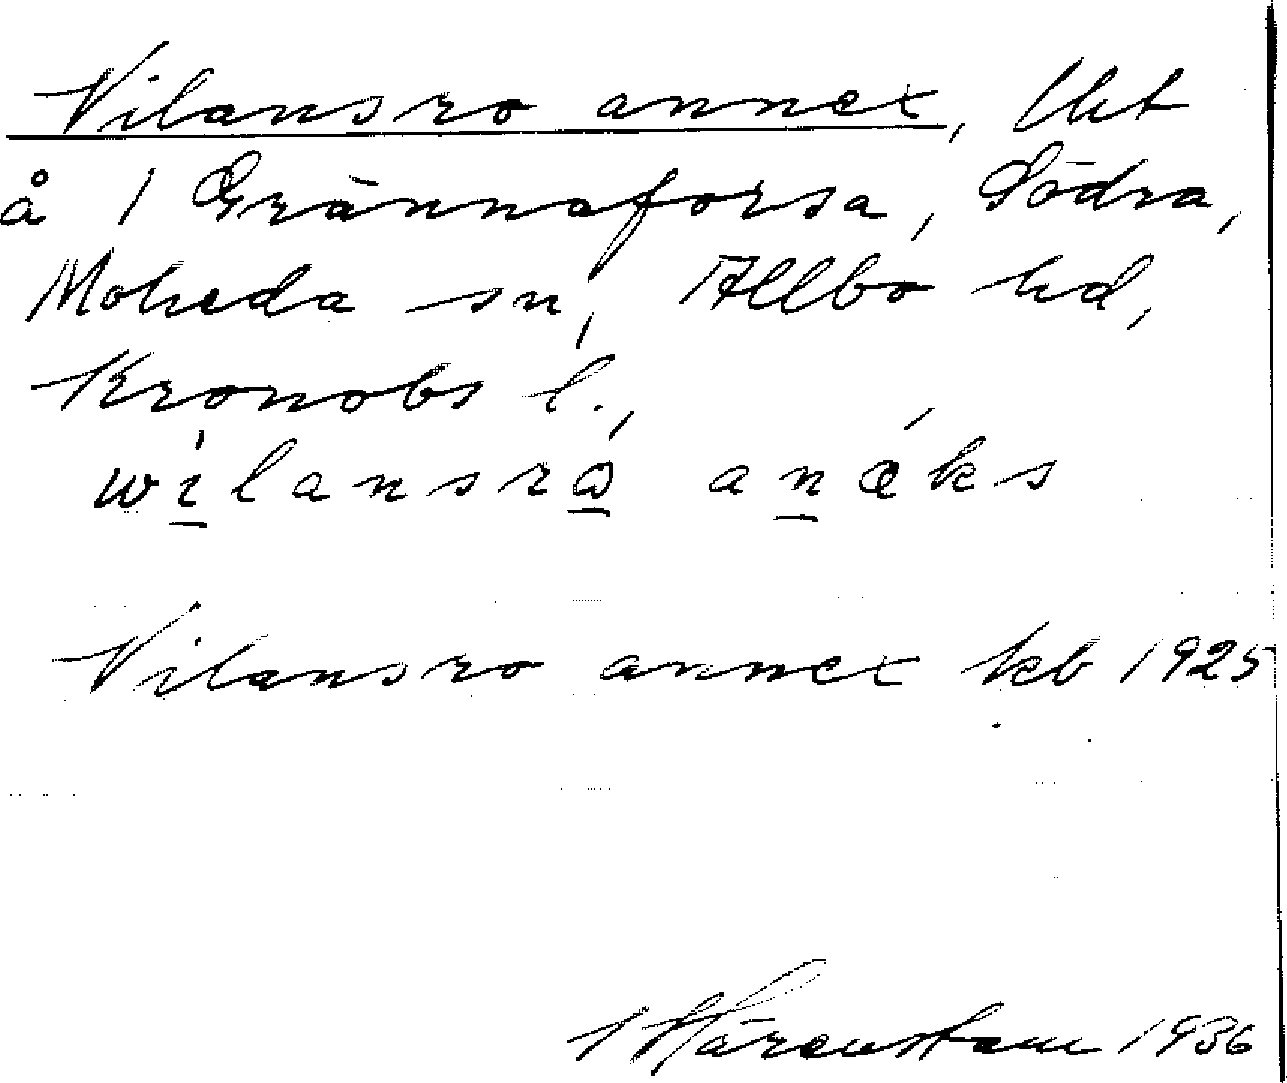 Vilansro annex, lht
å 1 Grännaforsa, Södra,
Moheda sn, Allbo hd,
Kronobs l.,
wilansrω anæks
Vilansro annex kb 1925
Härenstam 1936